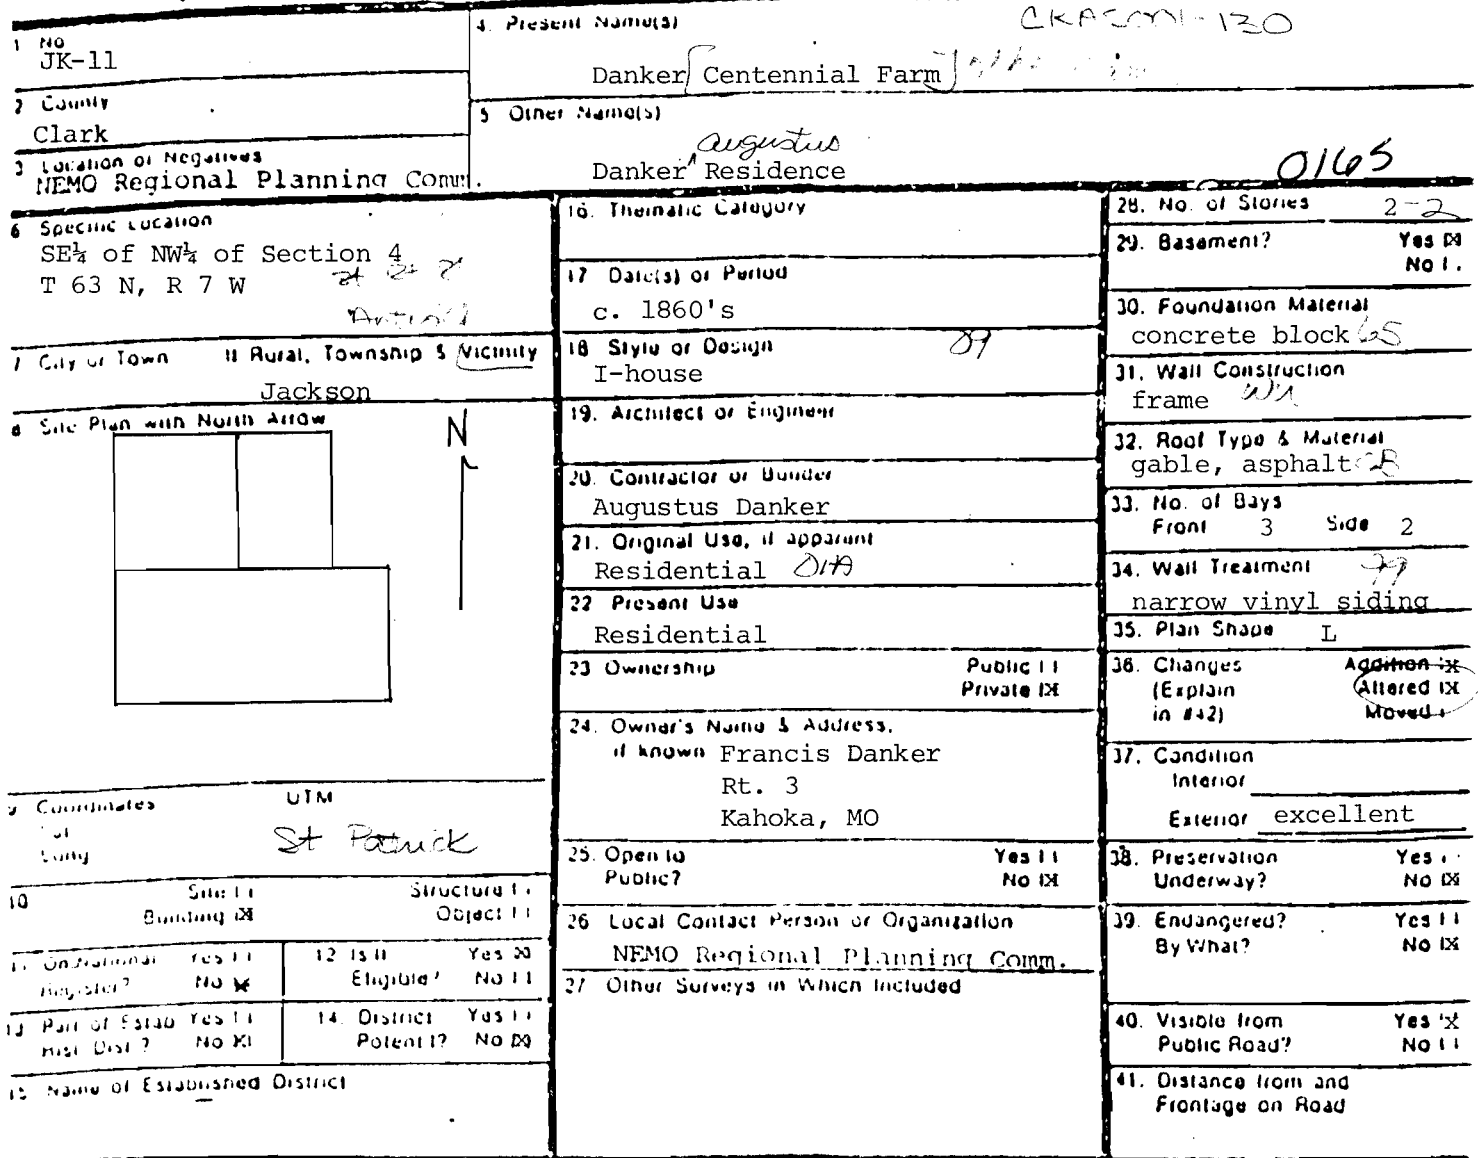 1 No
JK-11
2 County
Clark
3 Location of Negatives
NEMO Regional Planning Comm.
4. Present Name(s)
CKASC001-130
Danker Centennial Farm
5 Other Name(s)
Augustus
Danker Residence
0165
6 Specific Location
SE¼ of NW¼ of Section 4
T 63 N, R 7 W
7 City or Town If Rural, Township & Vicinity
Jackson
8 Site Plan with North Arrow
N
9 Coordinates UTM
Lat
Long
St Patrick
10 Site
Structure
Building
Object
11 On National Register? Yes No
12 Is It Eligible? Yes No
13 Part of Estab Hist Dist? Yes No
14. District Potent'l? Yes No
15 Name of Established District
16. Thematic Category
17 Date(s) or Period
c. 1860's
18 Style or Design
I-house
19. Architect or Engineer
20. Contractor or Builder
Augustus Danker
21. Original Use, if apparent
Residential
22 Present Use
Residential
23 Ownership Public
Private
24. Owner's Name & Address,
if known Francis Danker
Rt. 3
Kahoka, MO
25. Open to Public? Yes
No
26 Local Contact Person or Organization
NEMO Regional Planning Comm.
27 Other Surveys in Which Included
28. No. of Stories 2-2
29. Basement? Yes
No
30. Foundation Material
concrete block 65
31. Wall Construction
frame
32. Roof Type & Material
gable, asphalt
33. No. of Bays
Front 3 Side 2
34. Wall Treatment
narrow vinyl siding
35. Plan Shape L
36. Changes Addition
(Explain Altered
in #42) Moved
37. Condition
Interior
Exterior excellent
38. Preservation Yes
Underway? No
39. Endangered? Yes
By What? No
40. Visible from Yes
Public Road? No
41. Distance from and
Frontage on Road